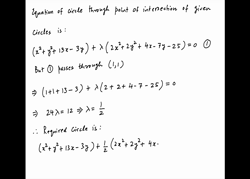 Equation of circle through point of intersection of given
Circles is :
(x²+y²+13x-3y) + λ (2x²+2y²+4x-7y-25) = 0 ①
But ① passes through (1,1)
⇒ (1+1+13-3) + λ (2+2+4-7-25) = 0
⇒ 24λ = 12 ⇒ λ = 1/2
∴ Required Circle is :
(x²+y²+13x-3y) + 1/2 (2x²+2y²+4x-